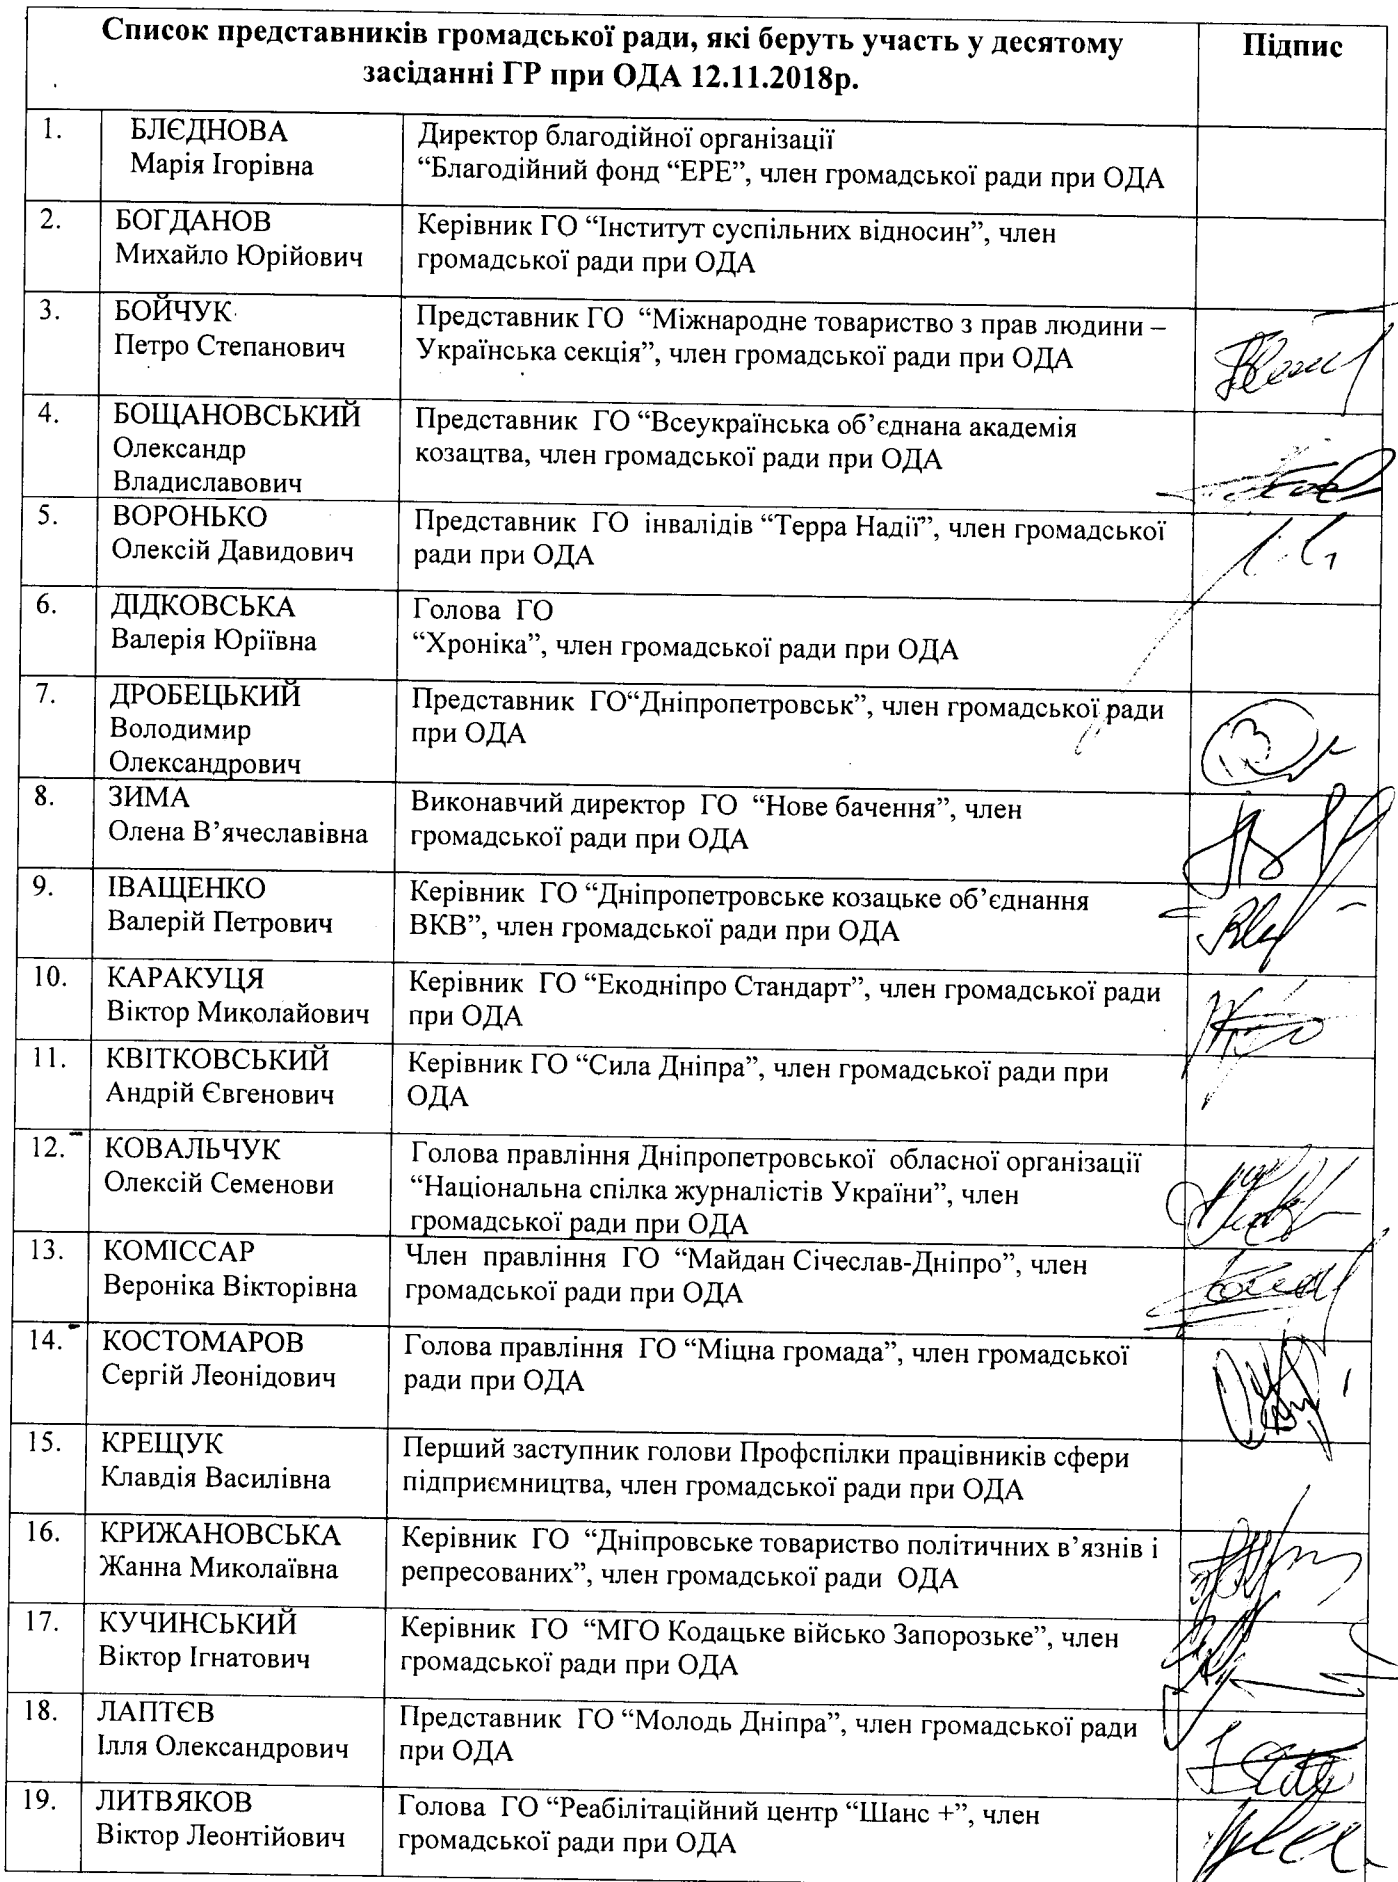 Список представників громадської ради, які беруть участь у десятому
засіданні ГР при ОДА 12.11.2018р.
Підпис
1.
БЛЄДНОВА
Марія Ігорівна
Директор благодійної організації
“Благодійний фонд “ЕРЕ”, член громадської ради при ОДА
2.
БОГДАНОВ
Михайло Юрійович
Керівник ГО “Інститут суспільних відносин”, член
громадської ради при ОДА
3.
БОЙЧУК
Петро Степанович
Представник ГО “Міжнародне товариство з прав людини –
Українська секція”, член громадської ради при ОДА
4.
БОЩАНОВСЬКИЙ
Олександр
Владиславович
Представник ГО “Всеукраїнська об’єднана академія
козацтва, член громадської ради при ОДА
5.
ВОРОНЬКО
Олексій Давидович
Представник ГО інвалідів “Терра Надії”, член громадської
ради при ОДА
6.
ДІДКОВСЬКА
Валерія Юріївна
Голова ГО
“Хроніка”, член громадської ради при ОДА
7.
ДРОБЕЦЬКИЙ
Володимир
Олександрович
Представник ГО“Дніпропетровськ”, член громадської ради
при ОДА
8.
ЗИМА
Олена В’ячеславівна
Виконавчий директор ГО “Нове бачення”, член
громадської ради при ОДА
9.
ІВАЩЕНКО
Валерій Петрович
Керівник ГО “Дніпропетровське козацьке об’єднання
ВКВ”, член громадської ради при ОДА
10.
КАРАКУЦЯ
Віктор Миколайович
Керівник ГО “Екодніпро Стандарт”, член громадської ради
при ОДА
11.
КВІТКОВСЬКИЙ
Андрій Євгенович
Керівник ГО “Сила Дніпра”, член громадської ради при
ОДА
12.
КОВАЛЬЧУК
Олексій Семенови
Голова правління Дніпропетровської обласної організації
“Національна спілка журналістів України”, член
громадської ради при ОДА
13.
КОМІССАР
Вероніка Вікторівна
Член правління ГО “Майдан Січеслав-Дніпро”, член
громадської ради при ОДА
14.
КОСТОМАРОВ
Сергій Леонідович
Голова правління ГО “Міцна громада”, член громадської
ради при ОДА
15.
КРЕЩУК
Клавдія Василівна
Перший заступник голови Профспілки працівників сфери
підприємництва, член громадської ради при ОДА
16.
КРИЖАНОВСЬКА
Жанна Миколаївна
Керівник ГО “Дніпровське товариство політичних в’язнів і
репресованих”, член громадської ради ОДА
17.
КУЧИНСЬКИЙ
Віктор Ігнатович
Керівник ГО “МГО Кодацьке військо Запорозьке”, член
громадської ради при ОДА
18.
ЛАПТЄВ
Ілля Олександрович
Представник ГО “Молодь Дніпра”, член громадської ради
при ОДА
19.
ЛИТВЯКОВ
Віктор Леонтійович
Голова ГО “Реабілітаційний центр “Шанс +”, член
громадської ради при ОДА